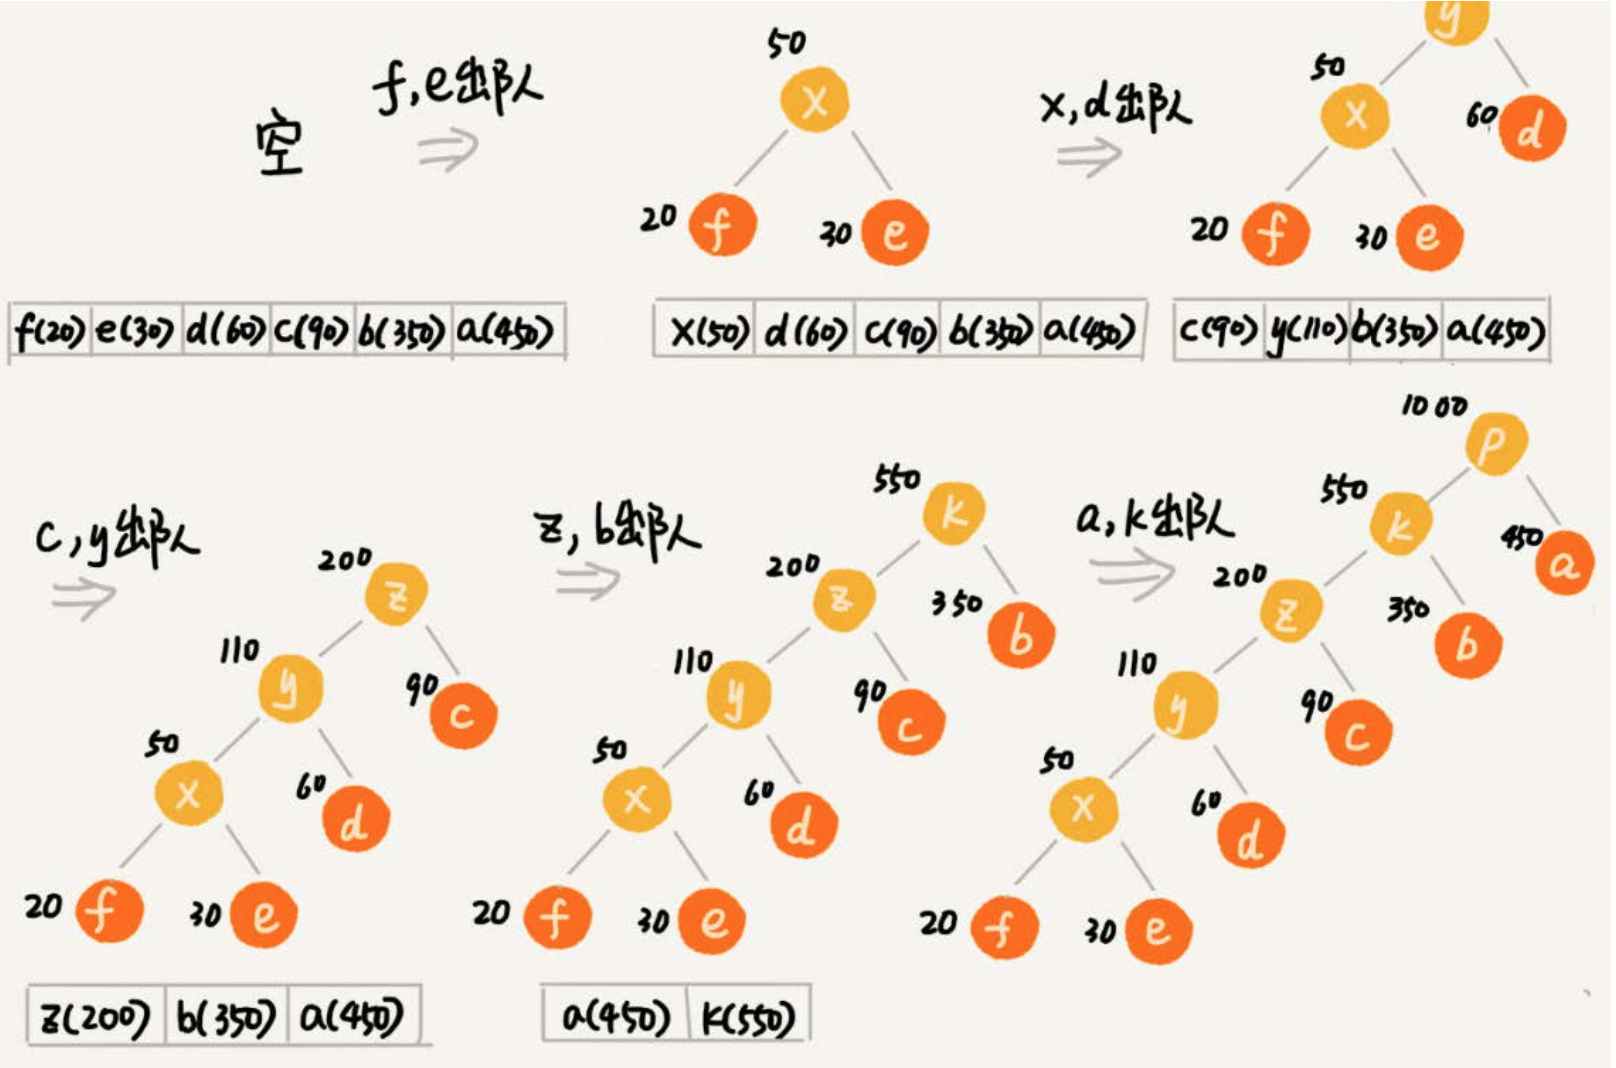 空
f,e出队
50
x
20 f
30 e
x,d出队
y
50
x
60 d
20 f
30 e
f(20) e(30) d(60) c(90) b(350) a(450)
x(50) d(60) c(90) b(350) a(450)
c(90) y(110) b(350) a(450)
c,y出队
200
z
110
y
90
c
50
x
60
d
20 f
30 e
z(200) b(350) a(450)
z,b出队
550
k
200
z
350
b
110
y
90
c
50
x
60
d
20 f
30 e
a(450) k(550)
a,k出队
1000
p
550
k
450
a
200
z
350
b
110
y
90
c
50
x
60
d
20 f
30 e